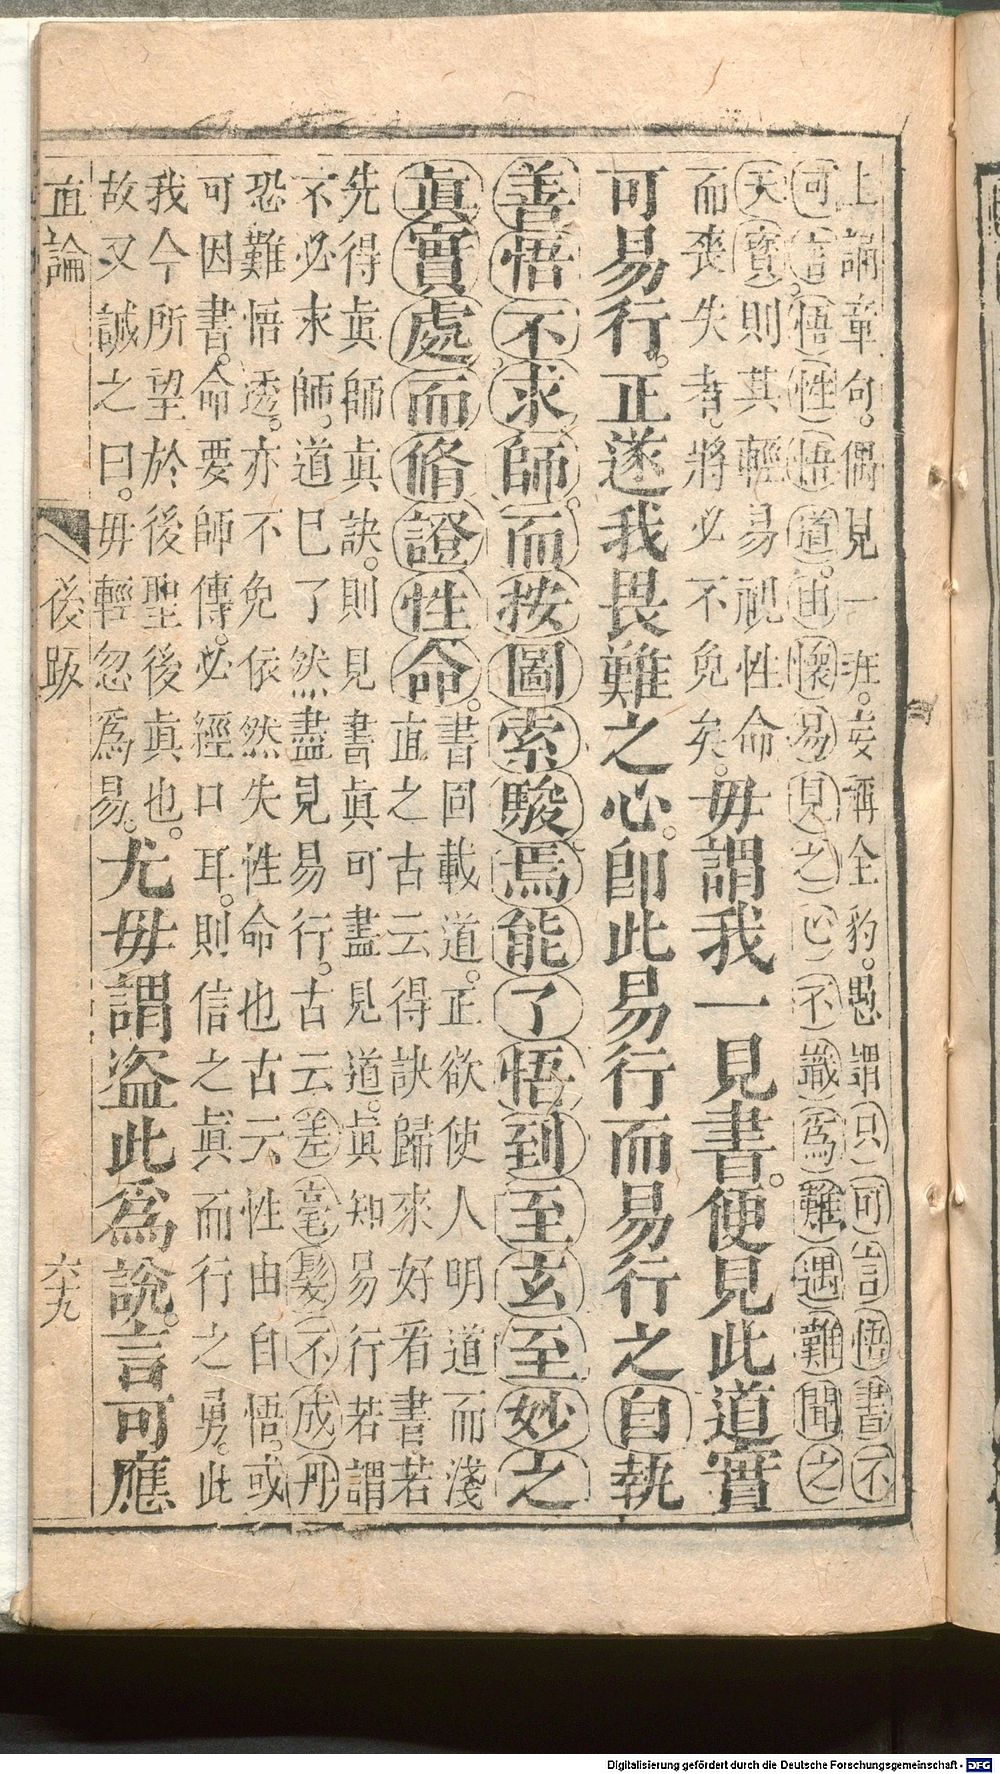 上誦章句。偶見一班。妄稱全豹。愚謂只可言悟書不
可言悟性悟道。由懷易見之心不識爲難遇難聞之
天寶。則其輕易視性命
而喪失者。將必不免矣。
毋謂我一見書。便見此道實
可易行。正遂我畏難之心。卽此易行而易行之自執
善悟不求師。而按圖索駿焉能了悟到至玄至妙之
眞實處而脩證性命。
書固載道。正欲使人明道而淺
直之古云得訣歸來好看書若
先得眞師眞訣。則見書眞可盡見道。眞知易行若謂
不必求師。道已了然盡見易行。古云差毫髮不成丹
恐難悟透。亦不免依然失性命也古云性由自悟。或
可因書。命要師傳。必經口耳。則信之眞而行之勇。此
我今所望於後聖後眞也。
故又誡之曰。毋輕忽爲易。
尤毋謂盜此爲說。言可應
直論 後跋 六九
Digitalisierung gefördert durch die Deutsche Forschungsgemeinschaft - DFG